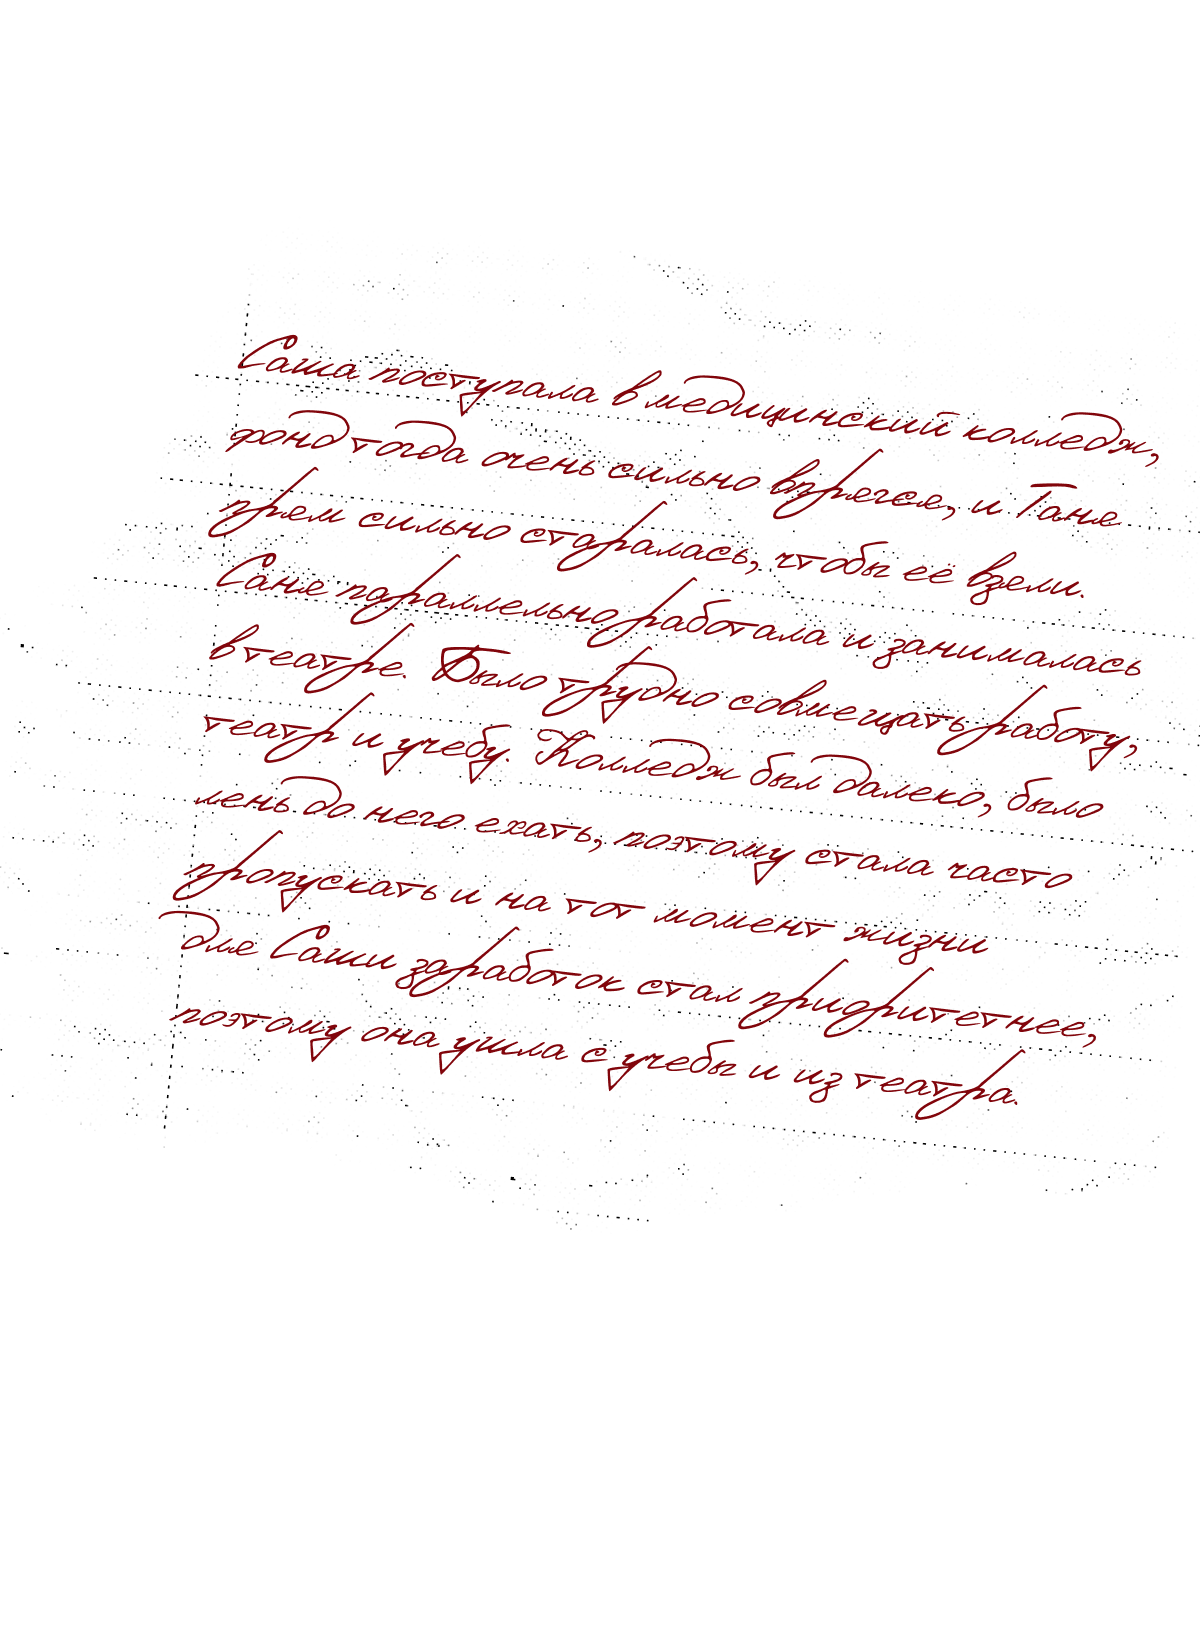 Саша поступала в медицинский колледж,
фонд тогда очень сильно впрягся, и Таня
прям сильно старалась, чтобы её взяли.
Саня параллельно работала и занималась
в театре. Было трудно совмещать работу,
театр и учебу. Колледж был далеко, было
лень до него ехать, поэтому стала часто
пропускать и на тот момент жизни
для Саши заработок стал приоритетнее,
поэтому она ушла с учебы и из театра.